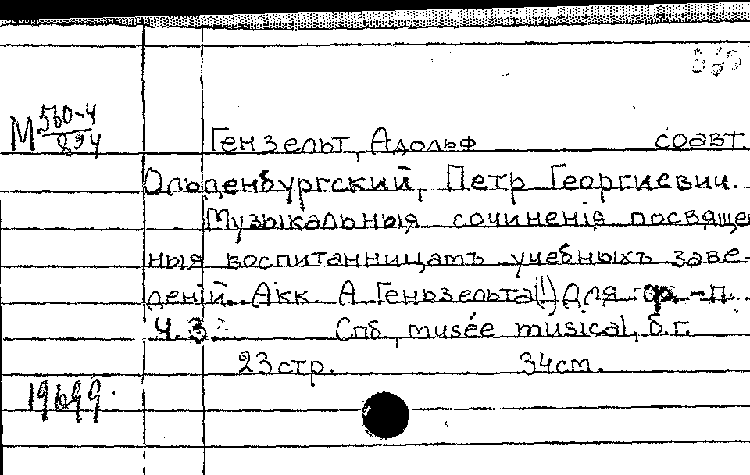 М 560-4/894
Гензельт, Адольф соавт.
Ольденбургский, Петр Георгиевич.
Музыкальныя сочиненія посвяще
ныя воспитанницамъ учебныхъ заве-
деній. Акк. А. Геньзельта(!) Для ф.-п.
Ч.3. Спб, musée musical, б.г.
23 стр. 34 см.
19699.